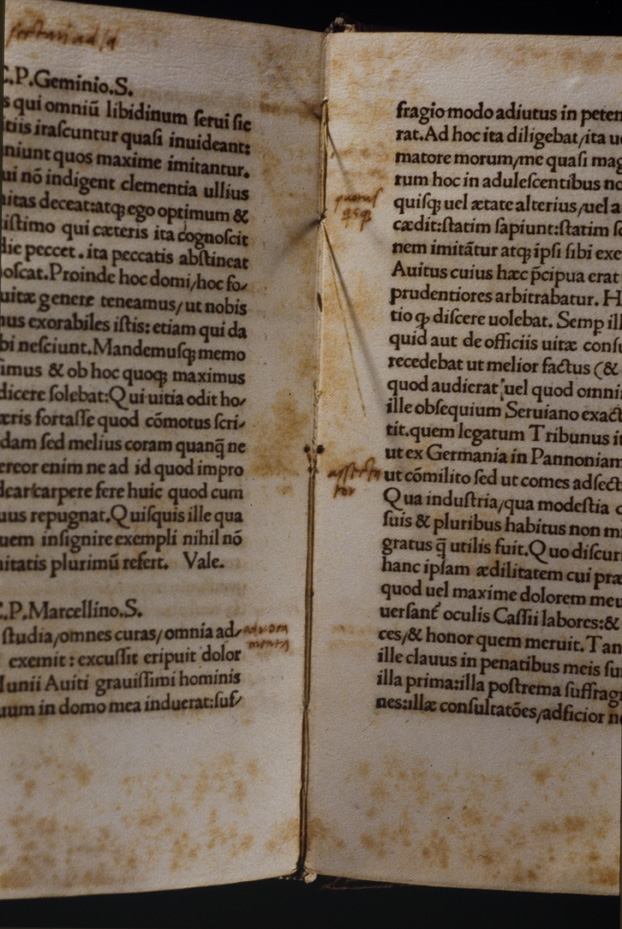 C.P.Geminio.S.
s qui omniū libidinum ſerui ſic
itiis iraſcuntur quaſi inuideant:
niunt quos maxime imitantur.
ui nō indigent clementia ullius
itas deceat:atq; ego optimum &
iſtimo qui cæteris ita cognoſcit
die peccet. ita peccatis abſtineat
oſcat. Proinde hoc domi/hoc fo/
uitæ genere teneamus/ut nobis
us exorabiles iſtis: etiam qui da
bi neſciunt. Mandemuſq; memo
imus & ob hoc quoq; maximus
dicere ſolebat: Qui uitia odit ho/
æris fortaſſe quod cōmotus ſcri/
dam ſed melius coram quanq̄ ne
ereor enim ne ad id quod impro
carcarpere fere huic quod cum
uus repugnat. Quiſquis ille qua
uem inſignire exempli nihil nō
itatis plurimū refert. Vale.
C.P.Marcellino.S.
ſtudia/omnes curas/omnia ad/
exemit: excuſſit eripuit dolor
Iunii Auiti grauiſſimi hominis
uum in domo mea induerat:ſuf/
fragio modo adiutus in peten
rat. Ad hoc ita diligebat/ita u
matore morum/me quaſi mag
rum hoc in aduleſcentibus no
quiſq; uel ætate alterius/uel a
cædit:ſtatim ſapiunt:ſtatim ſ
nem imitātur atq; ipſi ſibi exe
Auitus cuius hæc p̄cipua erat
prudentiores arbitrabatur. H
tio q; diſcere uolebat. Semp ill
quid aut de officiis uitæ conſu
recedebat ut melior factus (&
quod audierat uel quod omni
ille obſequium Seruiano exact
tit.quem legatum Tribunus i
ut ex Germania in Pannoniam
ut cōmilito ſed ut comes adſect
Qua induſtria/qua modeſtia q
ſuis & pluribus habitus non m
gratus q̄ utilis fuit. Quo diſcur
hanc ipſam ædilitatem cui præ
quod uel maxime dolorem meu
uerſant oculis Caſſii labores:&
ces/& honor quem meruit. Tan
ille clauus in penatibus meis ſu
illa prima:illa poſtrema ſuffragi
nes:illæ conſultatōes/adficior n